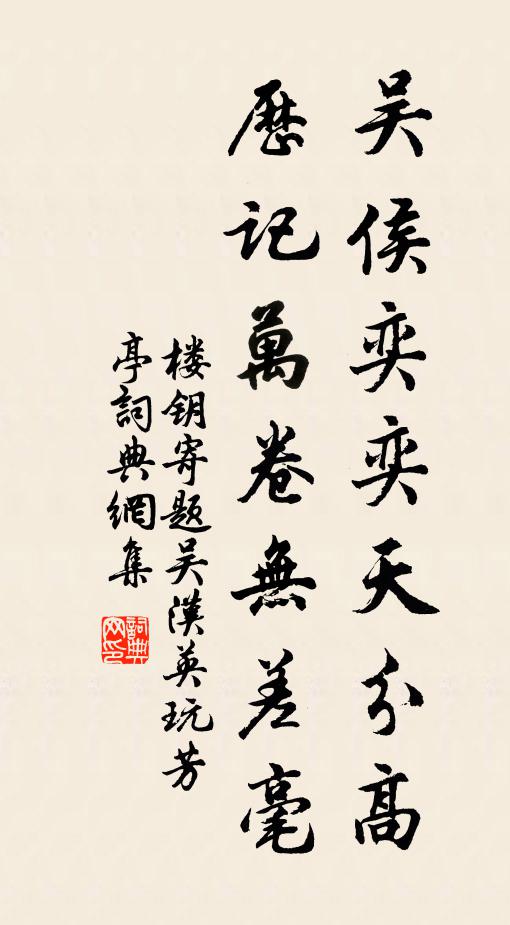 吴侯奕奕天分高
歷记萬卷無差毫
楼钥寄题吴漢英玩芳
亭詞典網集
詞典网印